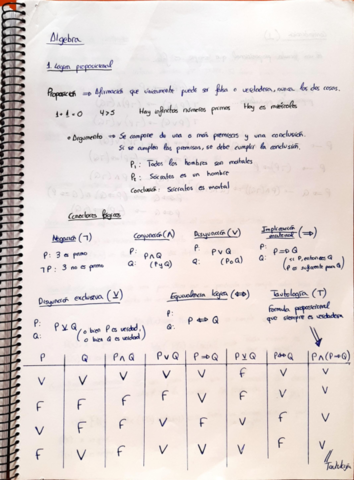 Algebra
1. Lógica proposicional
Proposición => Afirmación que únicamente puede ser falsa o verdadera, nunca las dos cosas.
1+1=0 4>5 Hay infinitos números primos Hoy es miércoles
• Argumento => Se compone de una o más premisas y una conclusión.
Si se cumplen las premisas, se debe cumplir la conclusión.
P₁: Todos los hombres son mortales
P₂: Sócrates es un hombre
Conclusión: Sócrates es mortal
Conectores lógicos
Negación (¬) Conjunción (∧) Disyunción (∨) Implicación material (=>)
P: 3 es primo P: P: P: P=>Q
¬P: 3 no es primo Q: P∧Q (P y Q) Q: P∨Q (P o Q) Q: (si P, entonces Q
Disyunción exclusiva (⊻) Equivalencia lógica (<=>) Tautología (T)
P: P: Fórmula proposicional
Q: P⊻Q (o bien P es verdad, Q: P<=>Q que siempre es verdadera
o bien Q es verdad)
P Q P∧Q P∨Q P=>Q P⊻Q P<=>Q P∧(P=>Q)
V V V V V F V V
F F F F V F V V
V F F V F V F V
F V F V V V F V
Tautología